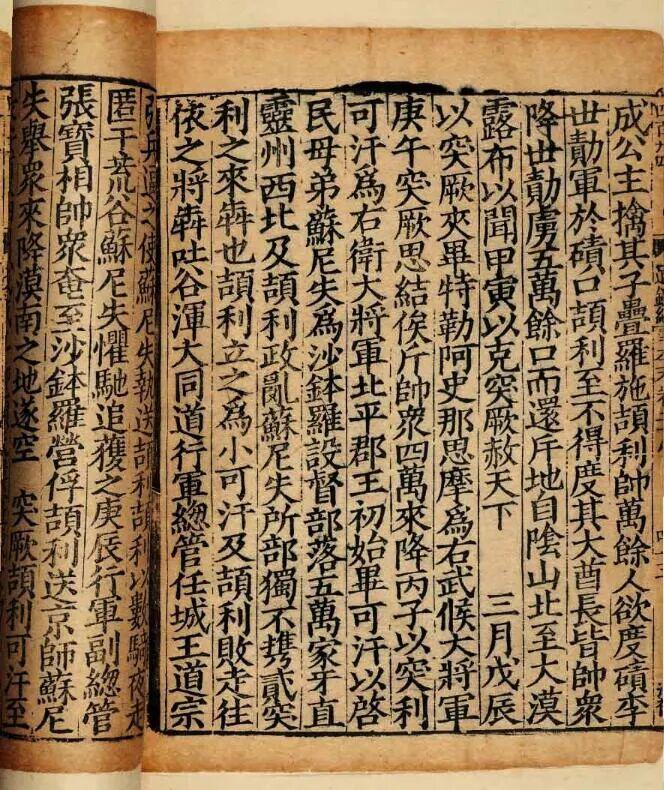 成公主擒其子疊羅施頡利帥萬餘人欲度磧李
世勣軍於磧口頡利至不得度其大酋長皆帥衆
降世勣虜五萬餘口而還斥地自陰山北至大漠
露布以聞甲寅以克突厥赦天下　三月戊辰
以突厥夾畢特勒阿史那思摩爲右武候大將軍
庚午突厥思結俟斤帥衆四萬來降丙子以突利
可汗爲右衛大將軍北平郡王初始畢可汗以啓
民母弟蘇尼失爲沙鉢羅設督部落五萬家牙直
靈州西北及頡利政亂蘇尼失所部獨不攜貳突
利之來犇也頡利立之爲小可汗及頡利敗走往
依之將犇吐谷渾大同道行軍總管任城王道宗
之使蘇尼失執送頡利頡利以數騎夜走
匿于荒谷蘇尼失懼馳追獲之庚辰行軍副總管
張寶相帥衆奄至沙鉢羅營俘頡利送京師蘇尼
失舉衆來降漠南之地遂空　突厥頡利可汗至